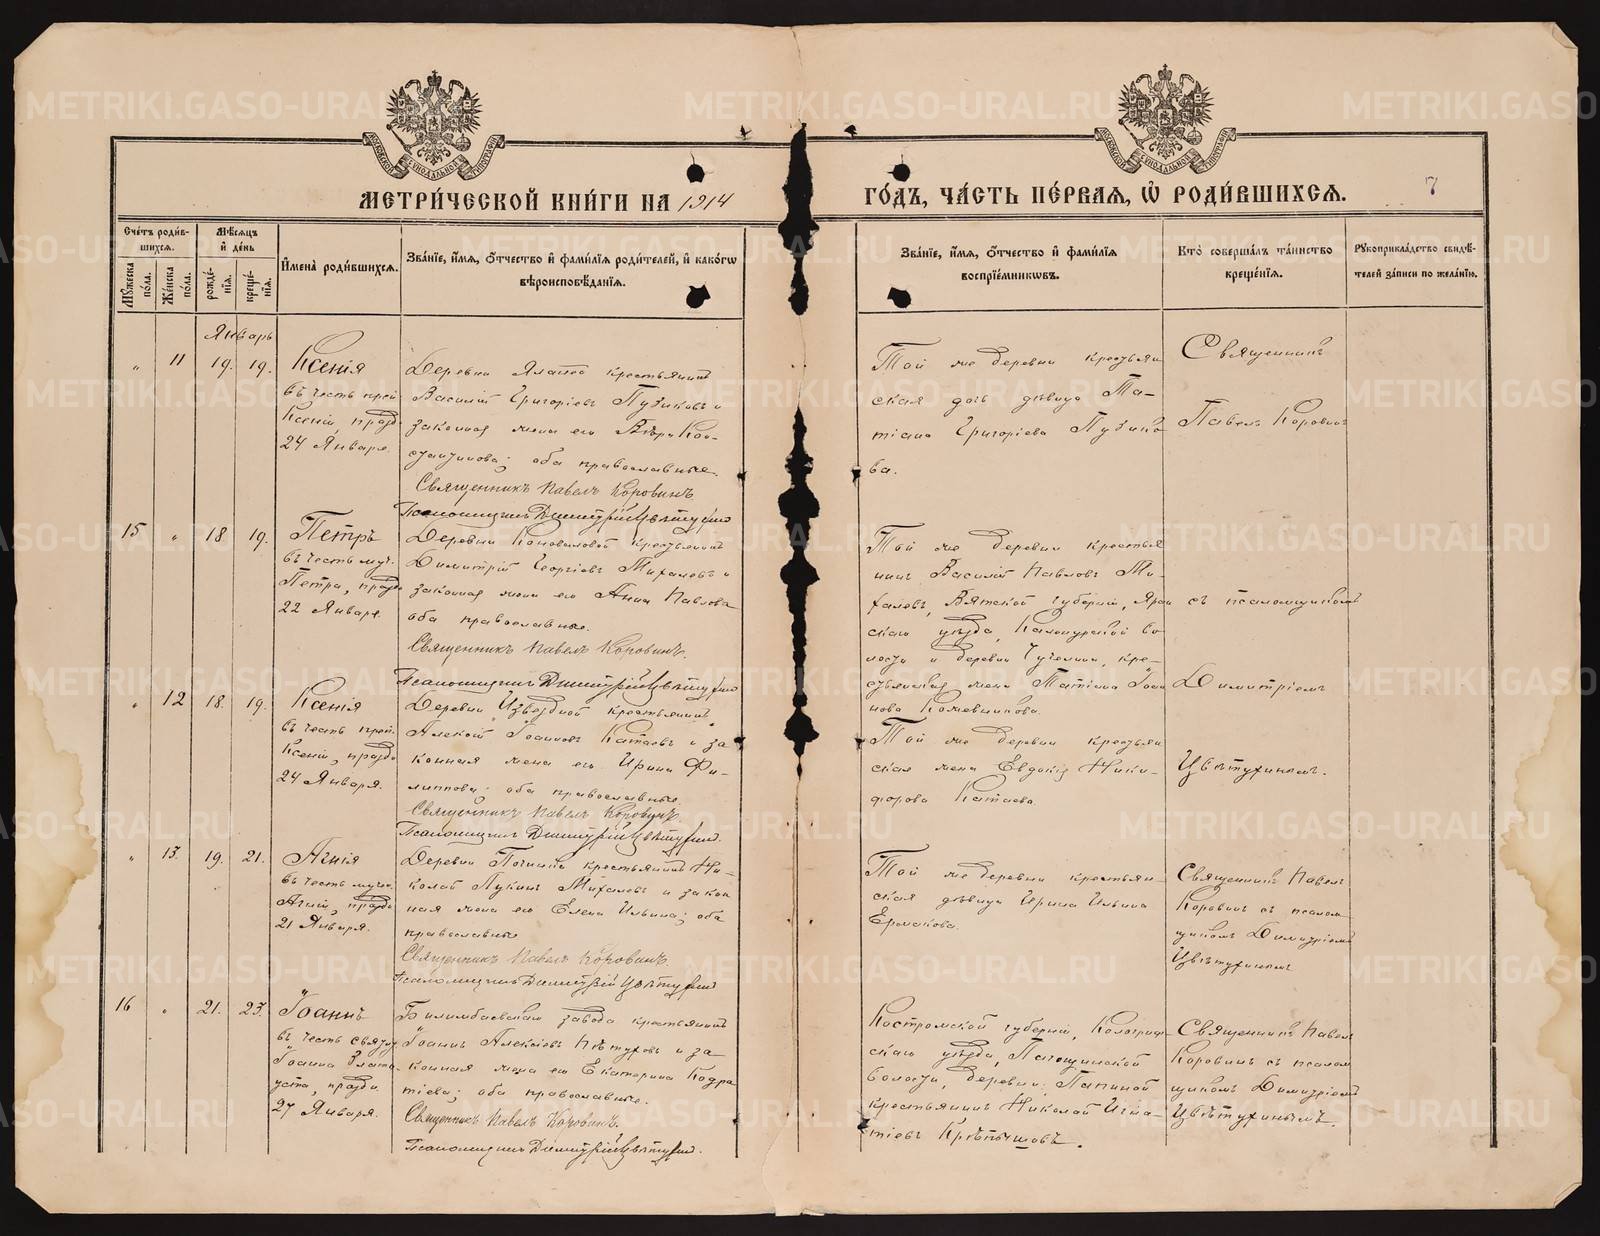 МЕТРИ́ЧЕСКОЙ КНИ́ГИ НА 1914
ГО́ДЪ, ЧА́СТЬ ПЕ́РВАЯ, Ѡ РОДИ́ВШИХСЯ.
7
Сче́тъ роди́в-
шихся.
Му́жеска по́ла.
Же́нска по́ла.
Мѣ́сяцъ
и де́нь
рожде́-
нія.
креще́-
нія.
Имена̀ роди́вшихся.
Зва́ніе, и́мя, о́тчество и фами́лія роди́телей, и како́гѡ
вѣроисповѣ́данія.
Зва́ніе, и́мя, о́тчество и фами́лія
воспріе́мникѡвъ.
Кто̀ соверша́лъ та́инство
креще́нія.
Рꙋкоприкла́дство свидѣ́-
телей за́писи по жела́нію.
Январь
" 11 19. 19.
Ксенія
въ честь преп.
Ксеніи, празд.
24 Января.
Деревни крестьянинъ
Василій Григоріевъ Пузиковъ и
законная жена его Вѣра Кон-
стантинова; оба православные.
Священникъ Павелъ Коровинъ.
Псаломщикъ Димитрій Цвѣтухинъ
Той же деревни крестьян
ская дочь дѣвица Та-
тіана Григоріева Пузико
ва.
Священникъ
Павелъ Коровинъ
15 " 18 19.
Петръ
въ честь муч.
Петра, празд.
22 Января.
Деревни Коноваловой крестьянинъ
Димитрій Георгіевъ Михалевъ и
законная жена его Анна Павлова
оба православные.
Священникъ Павелъ Коровинъ.
Псаломщикъ Димитрій Цвѣтухинъ
Той же деревни крестья
нинъ Василій Павловъ Ми-
халевъ, Вятской губерніи, Яран
скаго уѣзда, во
лости и деревни кре-
стьянская жена Татіана Іоан
нова Кожевникова.
съ псаломщикомъ
Димитріемъ
" 12 18. 19.
Ксенія
въ честь преп.
Ксеніи, празд.
24 Января.
Деревни Извѣздной крестьянинъ
Алексій Іоанновъ Катаевъ и за
конная жена его Ирина Фи-
липпова; оба православные.
Священникъ Павелъ Коровинъ.
Псаломщикъ Димитрій Цвѣтухинъ.
Той же деревни крестьян
ская жена Евдокія Ники-
форова Катаева.
Цвѣтухинымъ.
" 13. 19. 21.
Агнія
въ честь мучен.
Агніи, празд.
21 Января.
Деревни Починка крестьянинъ Ни-
колай Лукинъ Михалевъ и закон
ная жена его Елена Ильина; оба
православные
Священникъ Павелъ Коровинъ.
Псаломщикъ Димитрій Цвѣтухинъ
Той же деревни крестьян-
ская дѣвица Ирина Ильина
Ермакова.
Священникъ Павелъ
Коровинъ съ псалом
щикомъ Димитріемъ
Цвѣтухинымъ
16 " 21. 23.
Іоаннъ
въ честь святит.
Іоанна Злато-
уста, праздн.
27 Января.
Билимбаевскаго завода крестьянинъ
Іоаннъ Алексіевъ Пѣтуховъ и за-
конная жена его Екатерина Кодра
тіева; оба православные.
Священникъ Павелъ Коровинъ.
Псаломщикъ Димитрій Цвѣтухинъ.
Костромской губерніи, Кологрив-
скаго уѣзда,
волости, деревни Папиной
крестьянинъ Николай Игна-
тіевъ Крѣпышовъ.
Священникъ Павелъ
Коровинъ съ псалом
щикомъ Димитріемъ
Цвѣтухинымъ.
METRIKI.GASO-URAL.RU